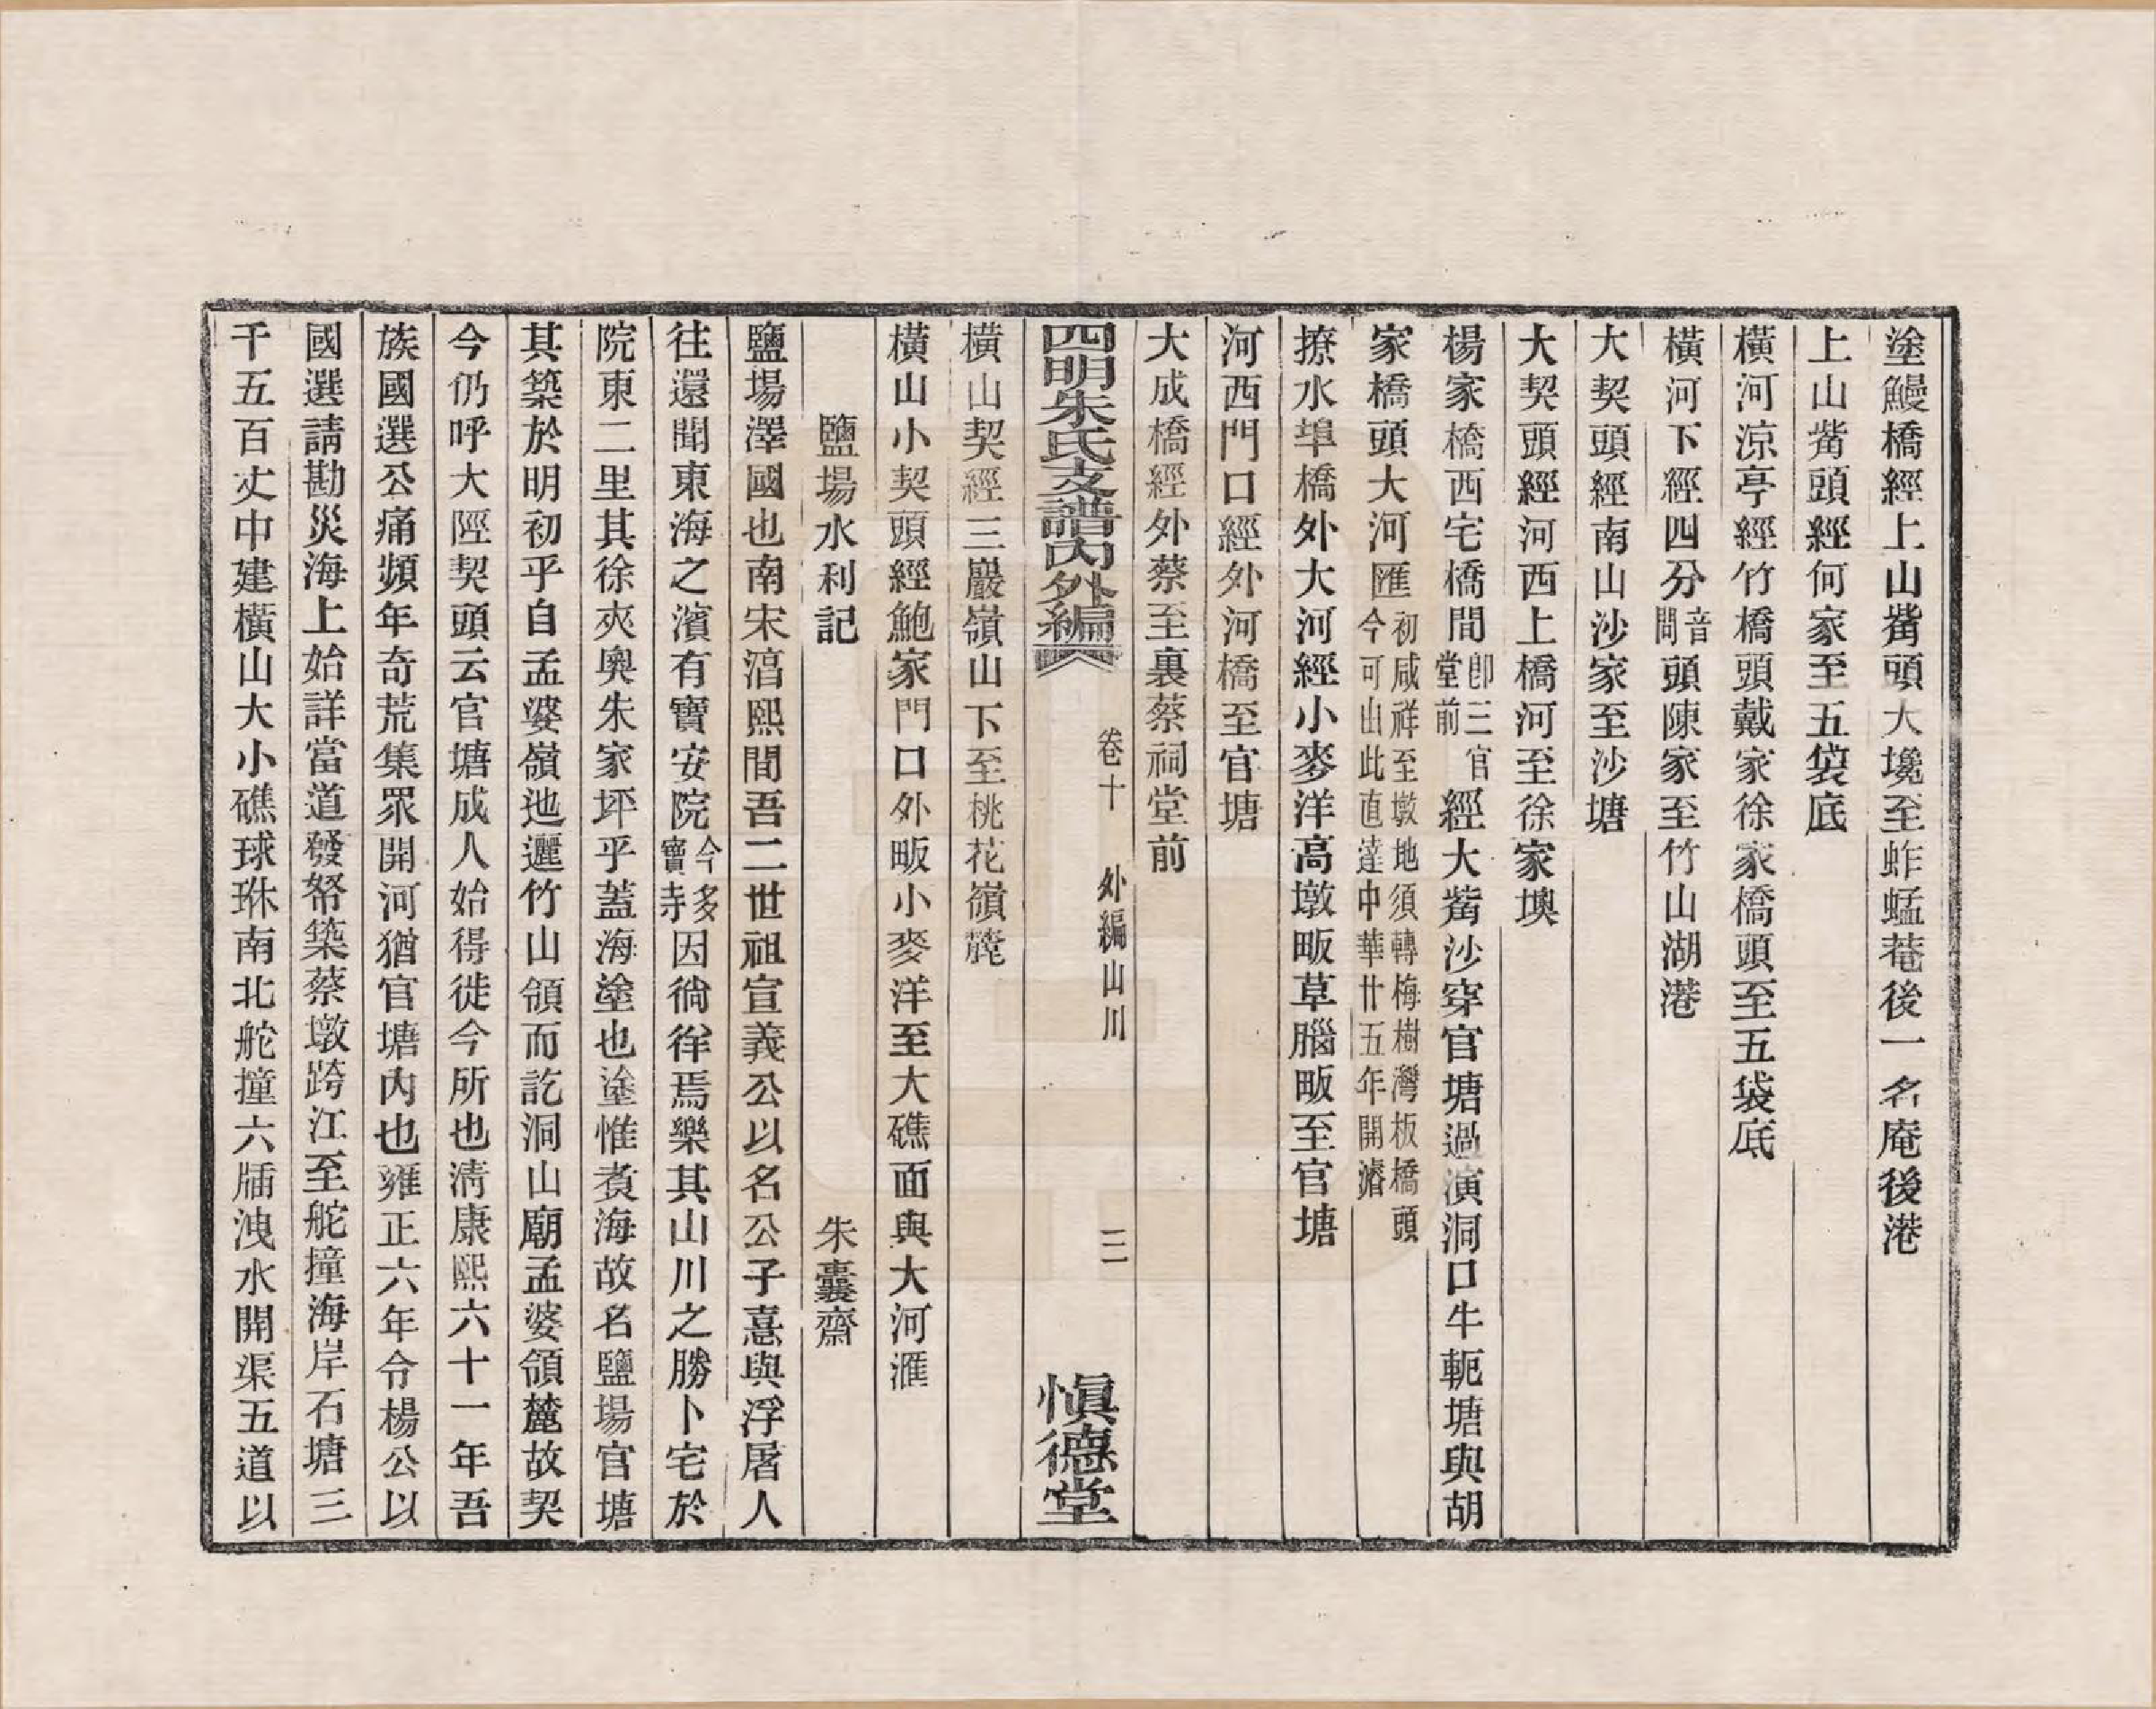 塗鰻橋經上山觜頭大堍至蚱蜢菴後一名庵後港
上山觜頭經何家至五袋底
橫河涼亭經竹橋頭戴家徐家橋頭至五袋底
橫河下經四分音間頭陳家至竹山湖港
大契頭經南山沙家至沙塘
大契頭經河西上橋河至徐家墺
楊家橋西宅橋間卽三官堂前經大觜沙穿官塘過演洞口牛軛塘與胡
家橋頭大河匯初咸祥至墩地須轉梅樹灣板橋頭今可山此直達中華廿五年開濬
撩水埠橋外大河經小麥洋高墩畈草腦畈至官塘
河西門口經外河橋至官塘
大成橋經外蔡至裏蔡祠堂前
四明朱氏支譜內外編 卷十 外編山川 三 愼德堂
橫山契經三巖嶺山下至桃花嶺麓
橫山小契頭經鮑家門口外畈小麥洋至大礁面與大河滙
鹽場水利記 朱囊齋
鹽場澤國也南宋淳熙間吾二世祖宣義公以名公子憙與浮屠人
往還聞東海之濱有寶安院今多寶寺因徜徉焉樂其山川之勝卜宅於
院東二里其徐夾奧朱家坪乎蓋海塗也塗惟煑海故名鹽場官塘
其築於明初乎自孟婆嶺迆邐竹山領而訖洞山廟孟婆領麓故契
今仍呼大陘契頭云官塘成人始得徙今所也淸康熙六十一年吾
族國選公痛頻年奇荒集眾開河猶官塘內也雍正六年令楊公以
國選請勘災海上始詳當道發帑築蔡墩跨江至舵撞海岸石塘三
千五百丈中建橫山大小礁球琳南北舵撞六牐洩水開渠五道以